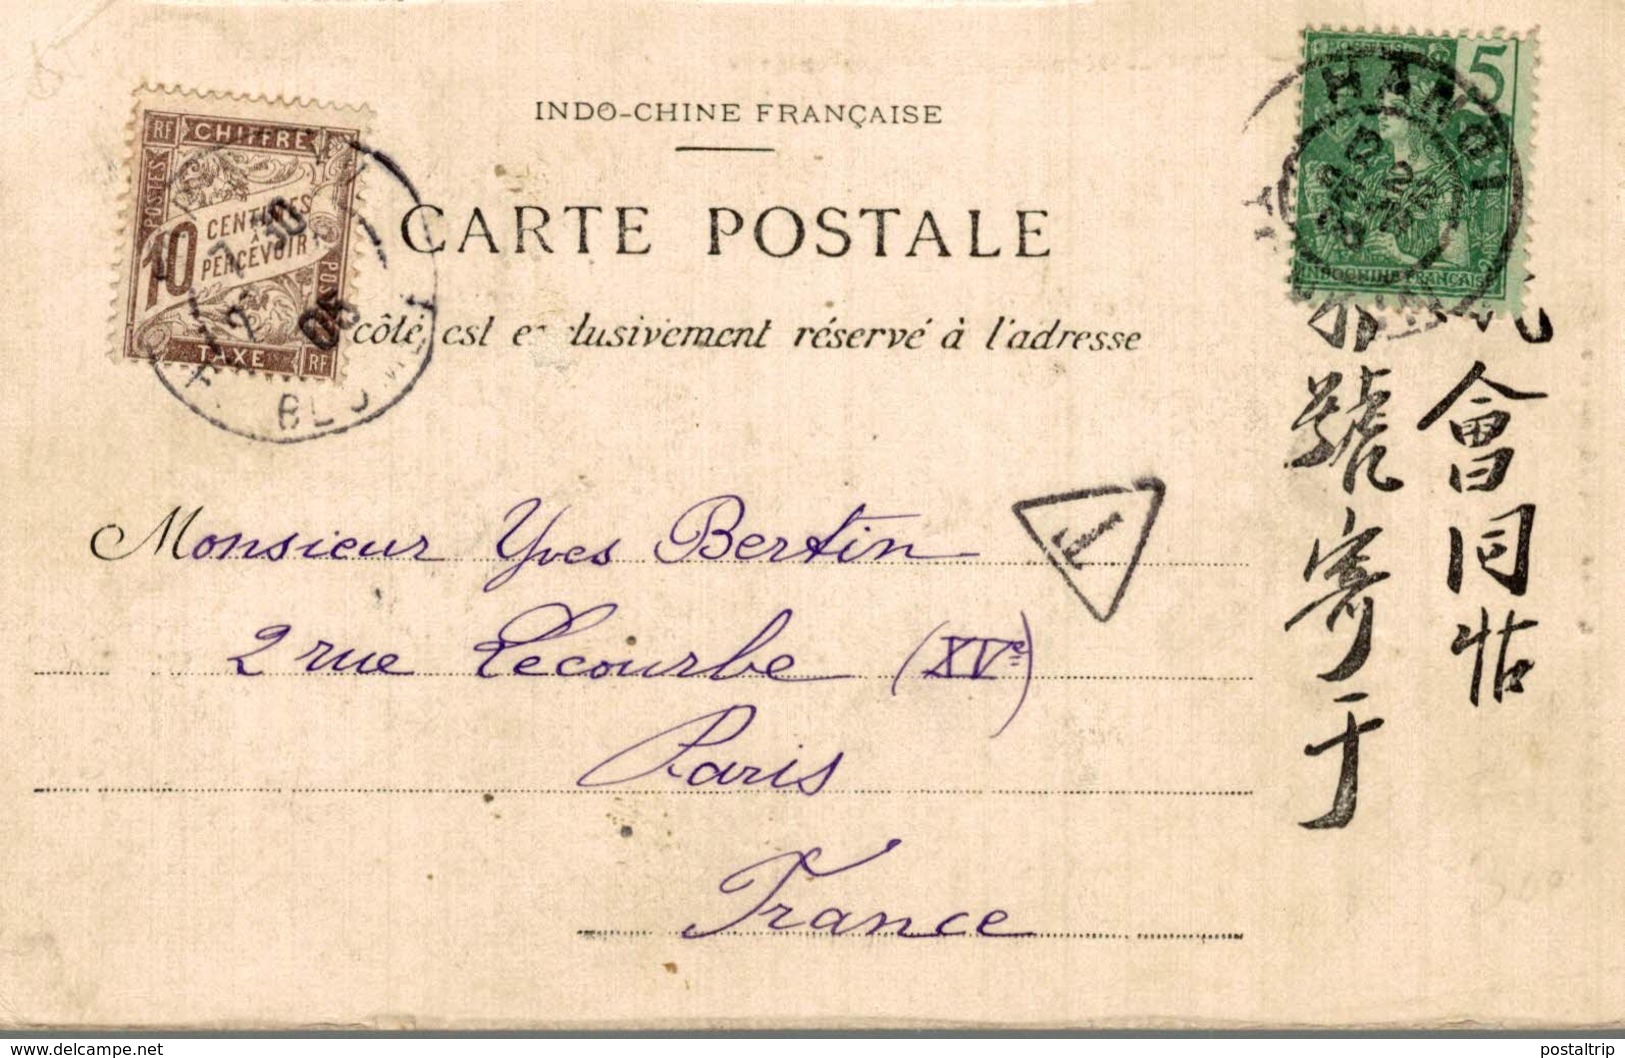 INDO-CHINE FRANÇAISE
CARTE POSTALE
côté est exclusivement réservé à l'adresse
RF CHIFFRE
POSTES
10 CENTIMES
À
PERCEVOIR
TAXE RF
06
BLO
5
HANOI
22
INDOCHINE FRANÇAISE
T
Monsieur Yves Bertin
2 rue Lecourbe (XVe)
Paris
France
會同帖
號寄于
delcampe.net
postaltrip